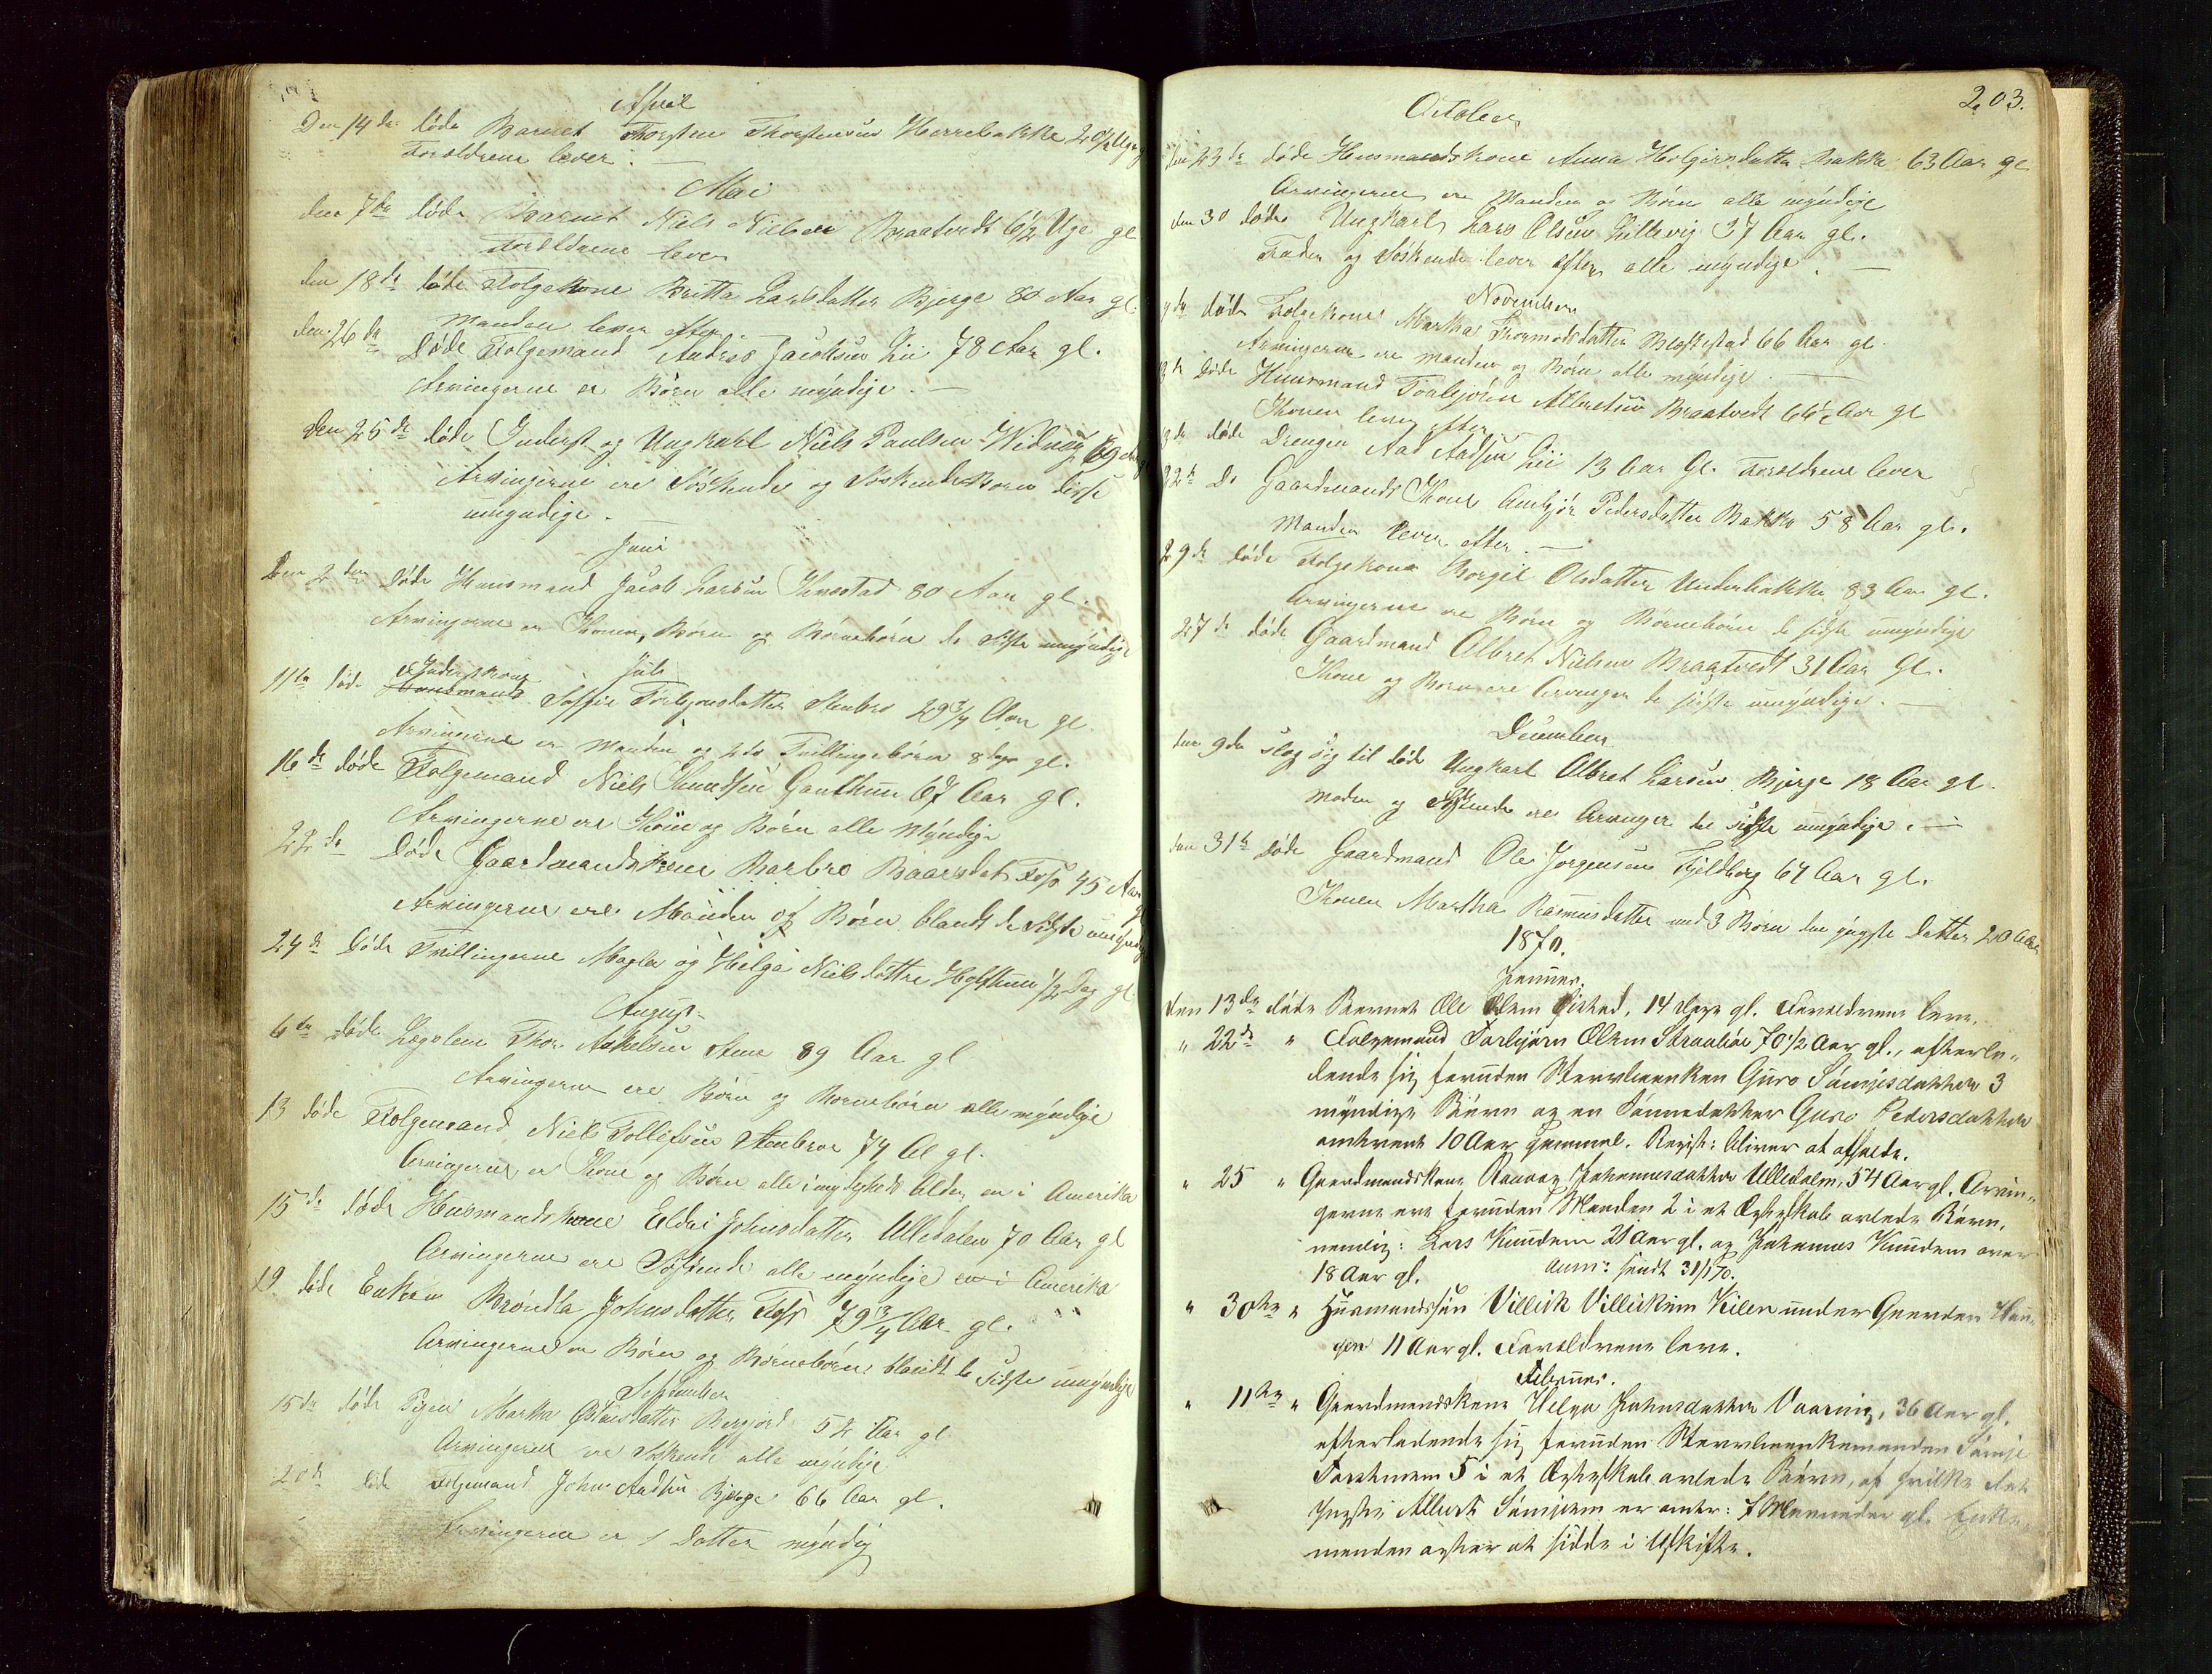 April
Den 14de døde Barnet Thorsten Thorstensen Herrebakke 20½ Uge gl
Foreldrene lever.
Mai
den 7de døde Barnet Niels Nielsen Braatvedt 6½ Uge gl
Foreldrene lever
den 18de døde Folgekone Britta Larsdatter Bjerge 80 Aar gl.
Manden lever efter.
den 26de Døde Folgemand Andres Jacobsen Lii 78 Aar gl.
Arvingerne er Børn alle myndige.
den 25de døde Inderst og Ungkarl Niels Paulsen 69
Arvingerne ere Søskende og Søskendeborn disse
umyndige.
Juni
Den 2den døde Huusmand Jacob Larsen 80 Aar gl.
Arvingerne er Konen, Børn og Børnebørn de sidste umyndige
Juli
11te død Inderstkone Huusmand Torbjønsdatter Stenbro 29¾ Aar gl.
Arvingerne er Manden og Tvillingebørn 8 dage gl.
16de døde Folgemand Niels Knudsen 67 Aar gl.
Arvingerne ere Kone og Børn alle Myndige
22de døde Gaardmandskone Barbro Baarsdat Foss 45 Aar
gl
Arvingerne ere Manden og Børn blandt de sidste umyndig
24de døde Tvillingerne og Helga Nielsdattre ½ Dag gl.
August
6te døde Lægslem Thor Askelsen Stene 89 Aar gl
Arvingerne ere Børn og Børnebørn alle myndige
13 døde Folgemand Niels Tollefsen Stenbroe 74 A gl.
Arvingerne er Kone og Børn alle i myndigheds Alder en i Amerika
15de døde Husmandskone Eldri Johnsdatter Ulledalen 70 Aar gl
Arvingerne ere Søskende alle myndige en i Amerika
19 døde Enken Johnsdatter Foss 79¾ Aar gl.
Arvingerne er Børn og Børnebørn blandt de sidste umyndige
September
15de døde Pigen Martha 52 Aar gl
Arvingerne ere Søskende alle myndige
20de døde Folgemand John Aadsen Bjerge 66 Aar gl.
Arvingerne er 1 Datter myndig
203.
October
den 23de døde Husmandskone Anna Holgersdatter Bakke 63 Aar gl
Arvingerne ere Manden og Børn alle myndige
den 30 døde Ungkarl Lars Olsen Lillevig 37 Aar gl.
Fader og Søskende lever efter alle myndige.
November
9de døde Folgekone Martha Thormodsdatter 66 Aar gl.
Arvingerne ere manden og Børn alle myndige
Døde Huusmand Torbjørn Albretsen Braatvedt 66½ Aar gl
Konen lever efter
døde Drengen Aad Aadsen Lii 13 Aar Gl. Foreldrene lever
22de Do Gaardmands Kone Anbjør Pedersdatter Bakke 58 Aar gl.
Manden lever efter.
29de døde Folgekone Borgil Olsdatter Underbakke 83 Aar gl.
Arvingerne ere Børn og Børnebørn de sidste umyndige
27de døde Gaardmand Albret Nielsen Braatvedt 31 Aar Gl.
Kone og Børn ere Arvinger de sidste umyndige.
December
den 9de slog sig til død Ungkarl Albret Larsen Bjerge 18 Aar gl.
Moder og Søskende ere Arvinger de sidste umyndige.
den 31te døde Gaardmand Ole Jørgensen Fjeldberg 64 Aar gl.
Konen Martha Rasmusdatter med 3 Børn den yngste Datter 20 Aar
1870.
Januar.
den 13de døde Barnet Ole Olsen, 14 Dage gl. Foreldrene leve.
" 22de " Folgemand Torbjørn Olsen Straabøe 70½ Aar gl., efterla-
dende sig foruden Stervboenken Guro Sămjesdatter 3
myndige Børn og en Sønnedatter Guro Pedersdatter
omtrent 10 Aar gammel. Regist: bliver at afholde.
" 25 " Gaardmandskone Johannesdatter Ulledalen, 54 Aar gl. Arvin-
gerne ere foruden Manden 2 i et Ægteskab avlede Børn,
nemlig: Lars Knudsen 21 Aar gl. og Johannes Knudsen over
18 Aar gl. Anm: sendt 31/1 70.
" 30te " Huusmandssøn Villick Villicksen Kilen under Gaarden
gen 11 Aar gl. Foreldrene leve.
Februar.
" 11te " Gaardmandskone Helga Johnsdatter Vaaring, 36 Aar gl.
efterladende sig foruden Stervboenkemanden Sămje
Torstensen 5 i et Ægteskab avlede Børn, af hvilke det
Yngste Albert Sămjesen er omtr: 7 Maaneder gl. Enke-
manden agter at sidde i Uskifte.